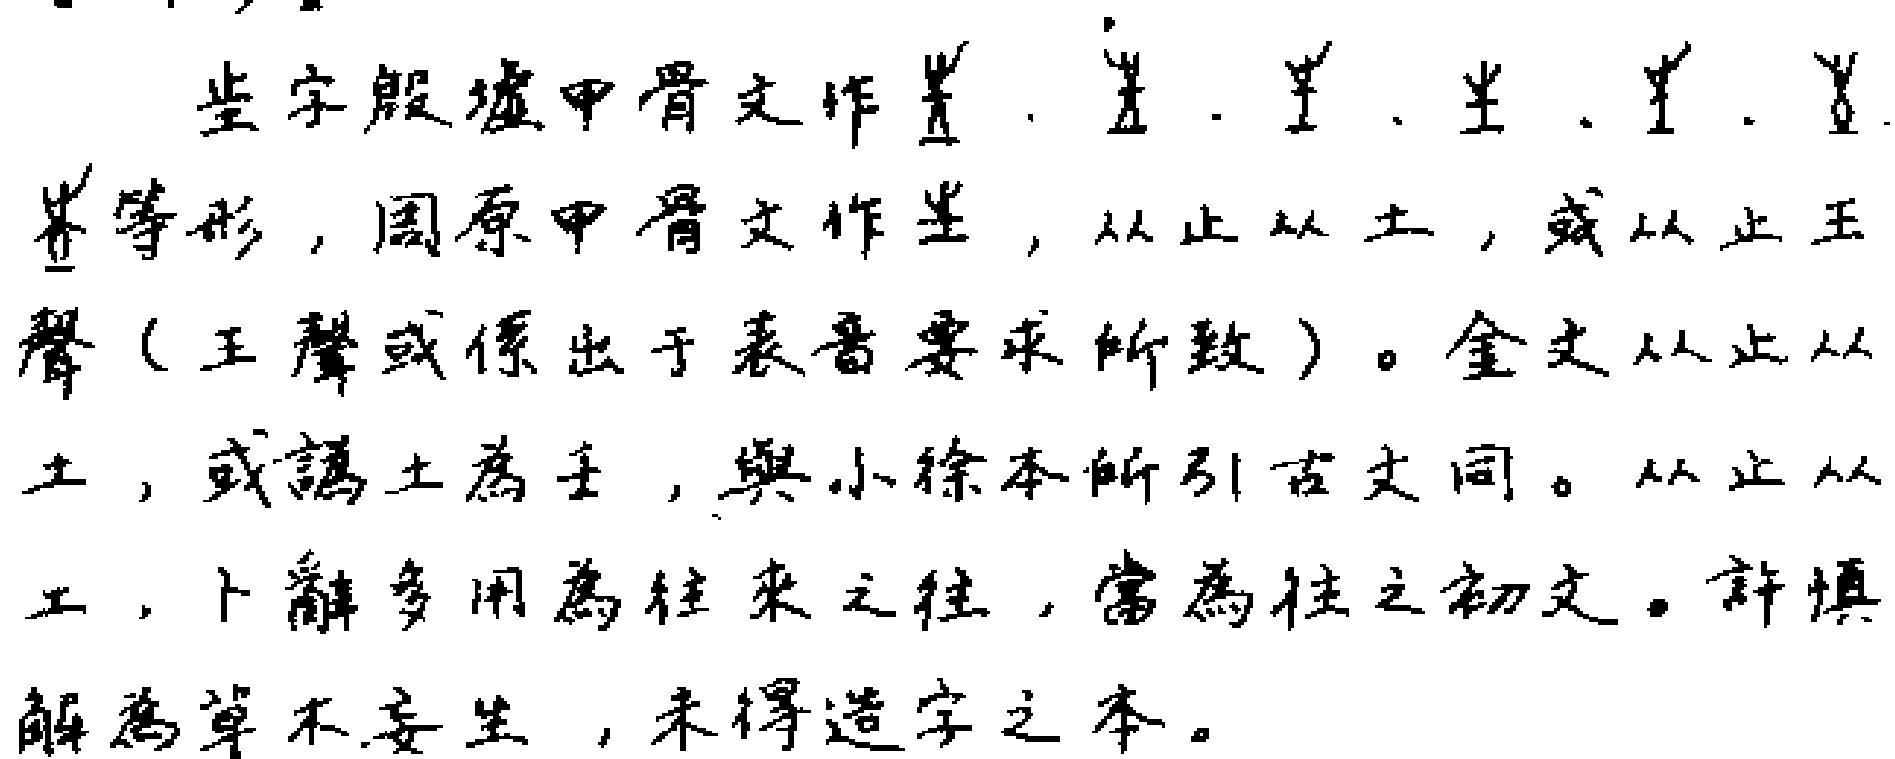 㞷字殷墟甲骨文作
等形，周原甲骨文作㞷，从止从土，或从止王
聲（王聲或係出于表音要求所致）。金文从止从
土，或譌土為壬，與小徐本所引古文同。从止从
土，卜辭多用為往來之往，當為往之初文。許慎
解為草木妄生，未得造字之本。